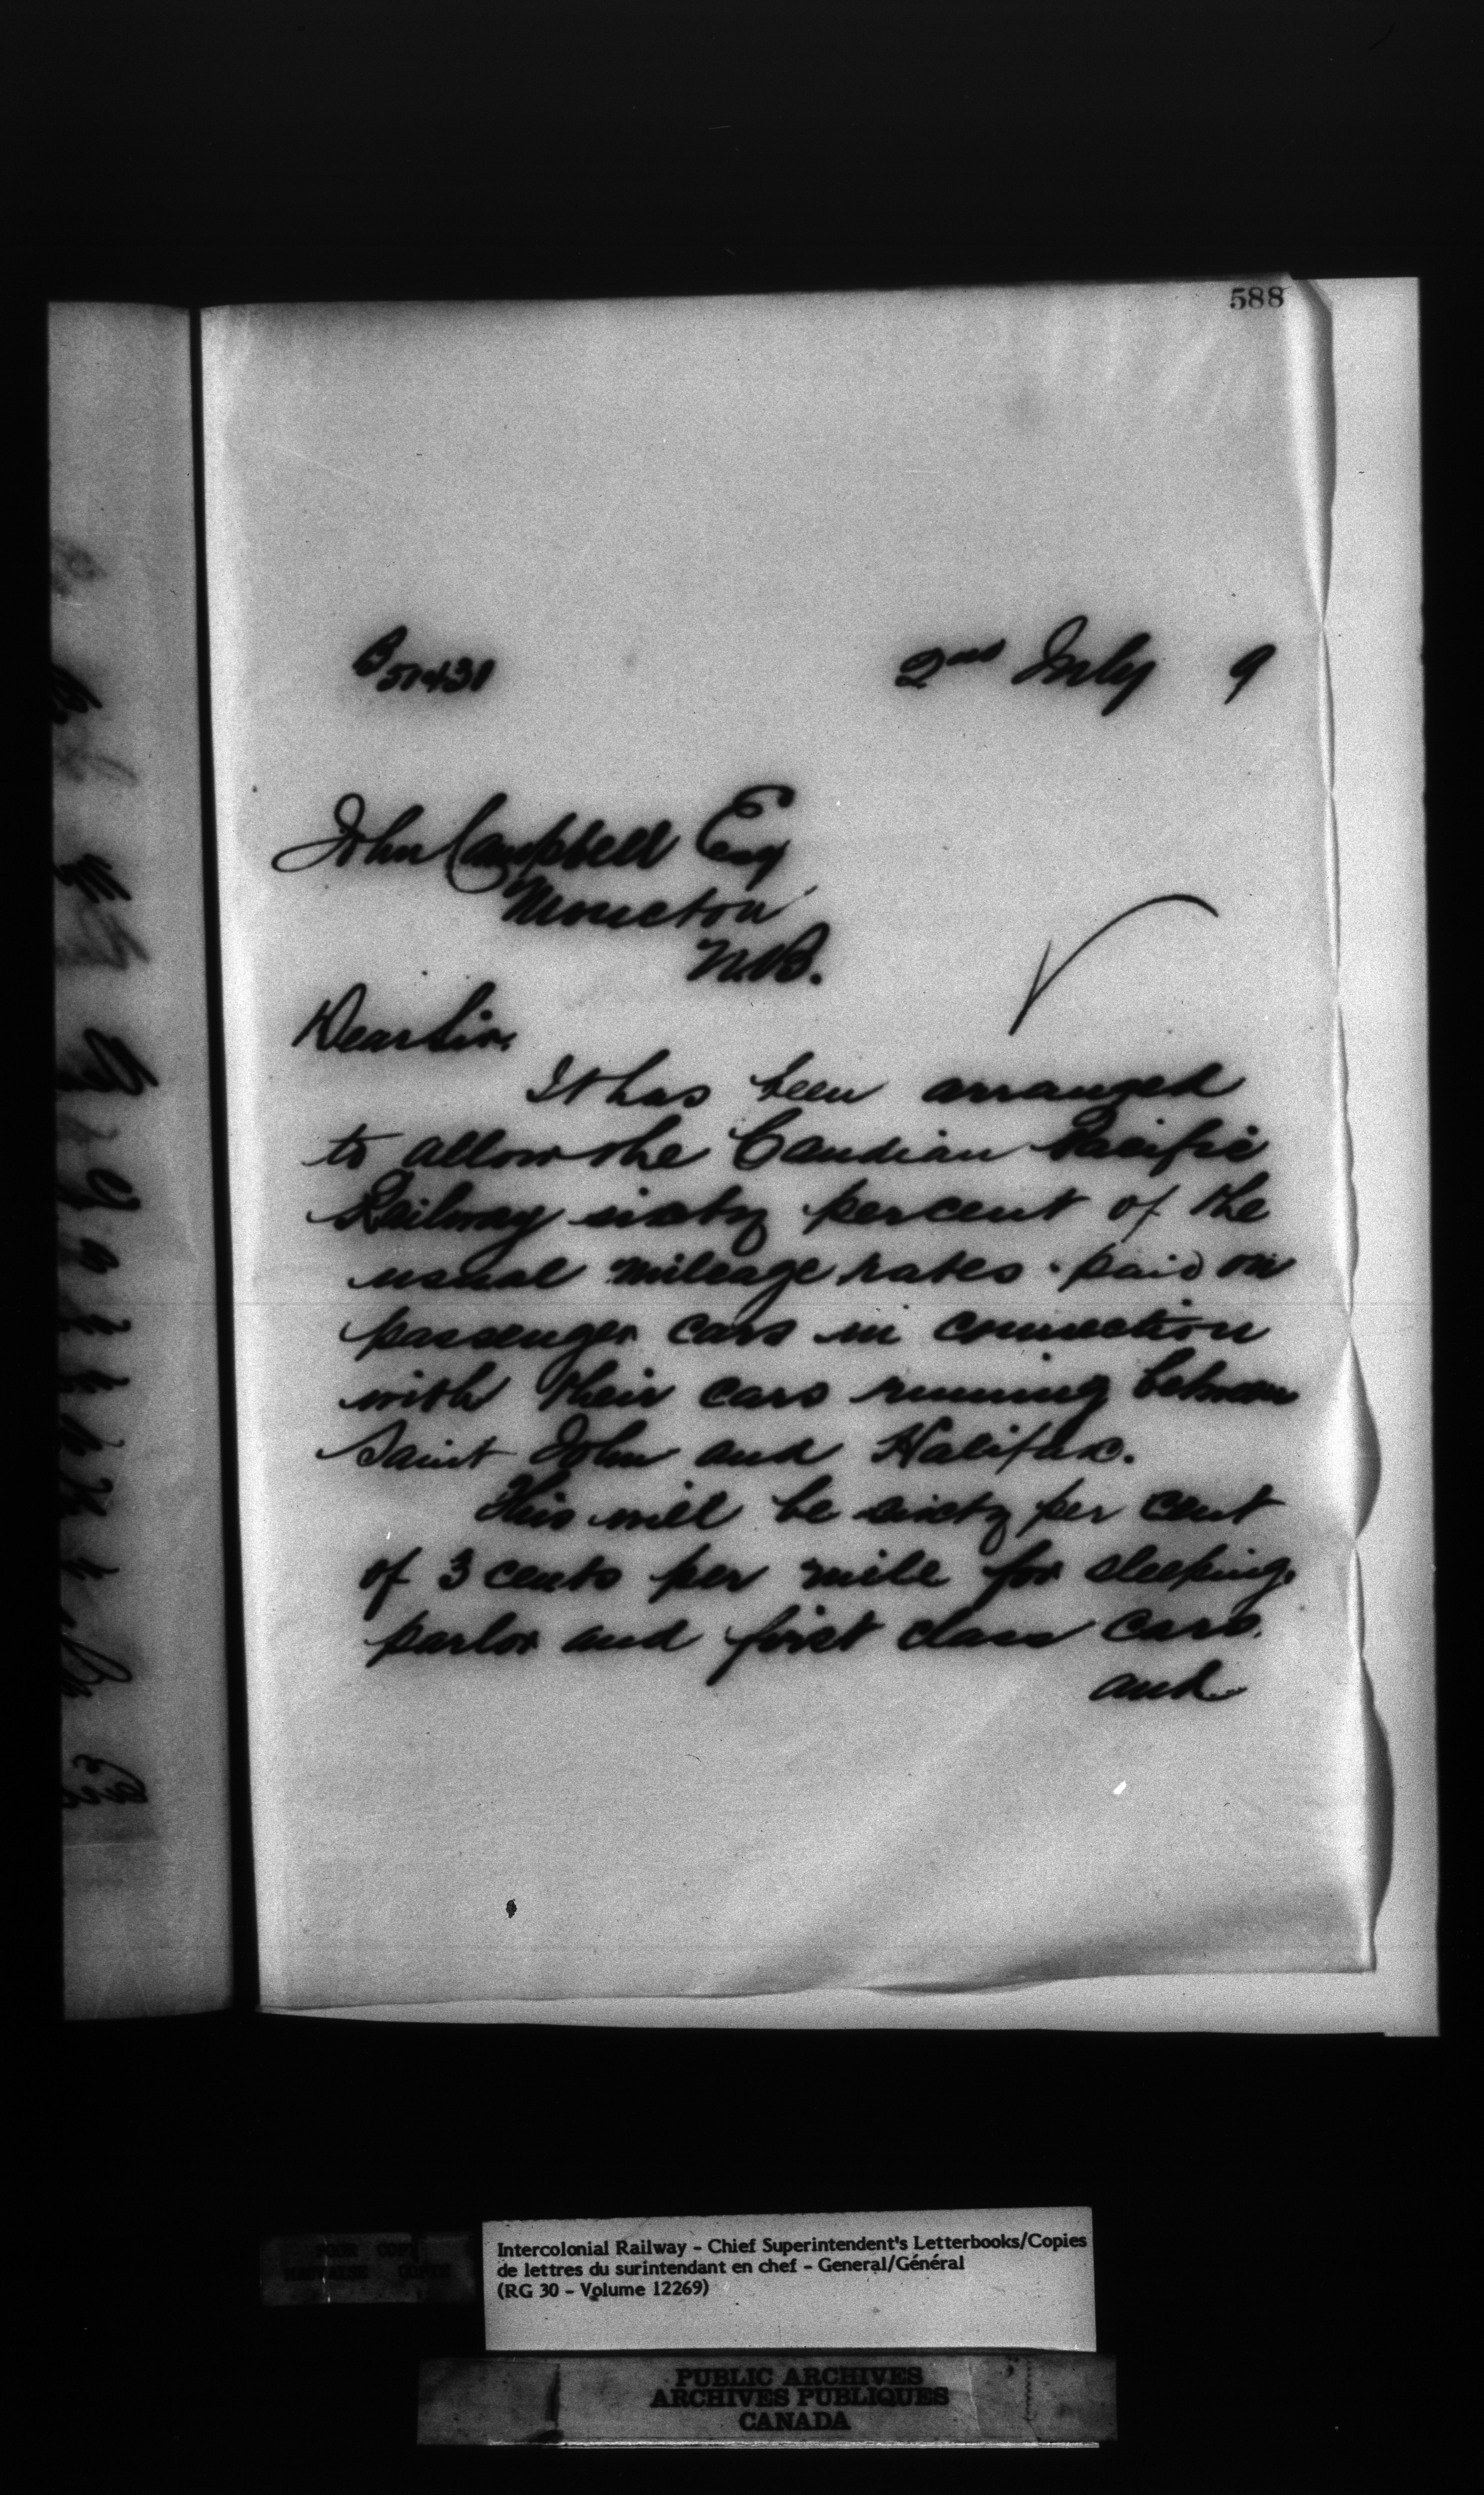 588
B51431
2nd July 9
John Campbell Esq
Moncton
N.B.
Dear Sir.
It has been arranged
to allow the Canadian Pacific
Railway sixty percent of the
usual mileage rates paid on
passenger cars in connection
with their cars running between
Saint John and Halifax.
This will be sixty per cent
of 3 cents per mile for sleeping,
parlor and first class cars.
and
POOR COPY
MAUVAISE COPIE
Intercolonial Railway - Chief Superintendent's Letterbooks/Copies
de lettres du surintendant en chef - General/Général
(RG 30 - Volume 12269)
PUBLIC ARCHIVES
ARCHIVES PUBLIQUES
CANADA